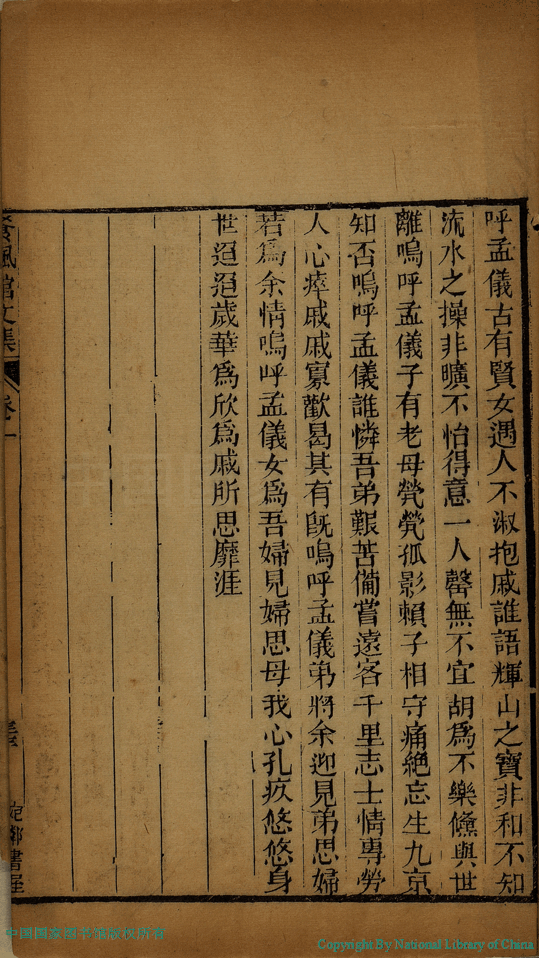 呼孟儀古有賢女遇人不淑抱戚誰語輝山之寶非和不知
流水之操非曠不怡得意一人罄無不宜胡為不樂儵與世
離嗚呼孟儀子有老母煢煢孤影賴子相守痛絕忘生九京
知否嗚呼孟儀誰憐吾弟艱苦備嘗遠客千里志士情專勞
人心瘁戚戚寡歡曷其有既嗚呼孟儀弟將余迎見弟思婦
若為余情嗚呼孟儀女為吾婦見婦思母我心孔疚悠悠身
世迢迢歲華為欣為戚所思靡涯
風館文集
卷一
書屋
中国国家图书馆版权所有
Copyright By National Library of China